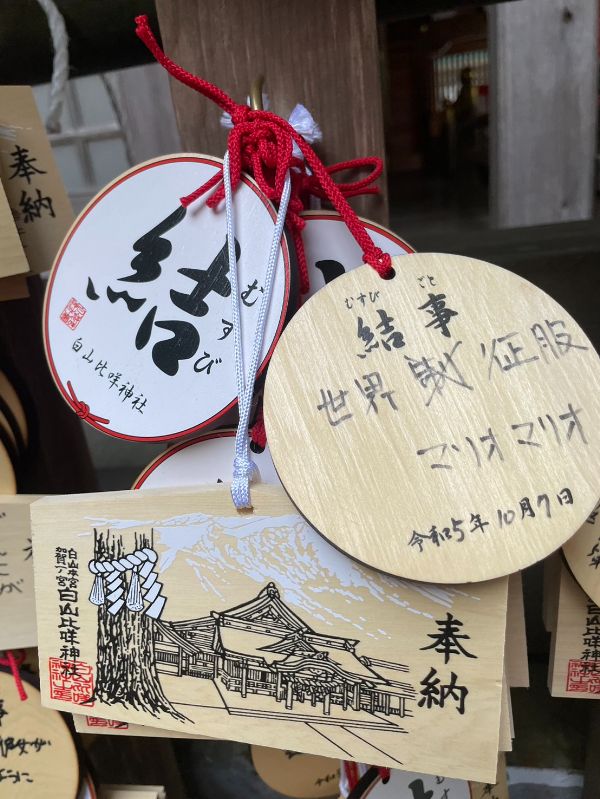 奉納
結
むすび
白山比咩神社
むすび ごと
結事
世界 征服
マリオマリオ
令和5年10月7日
白山本宮
加賀一ノ宮
白山比咩神社
奉納